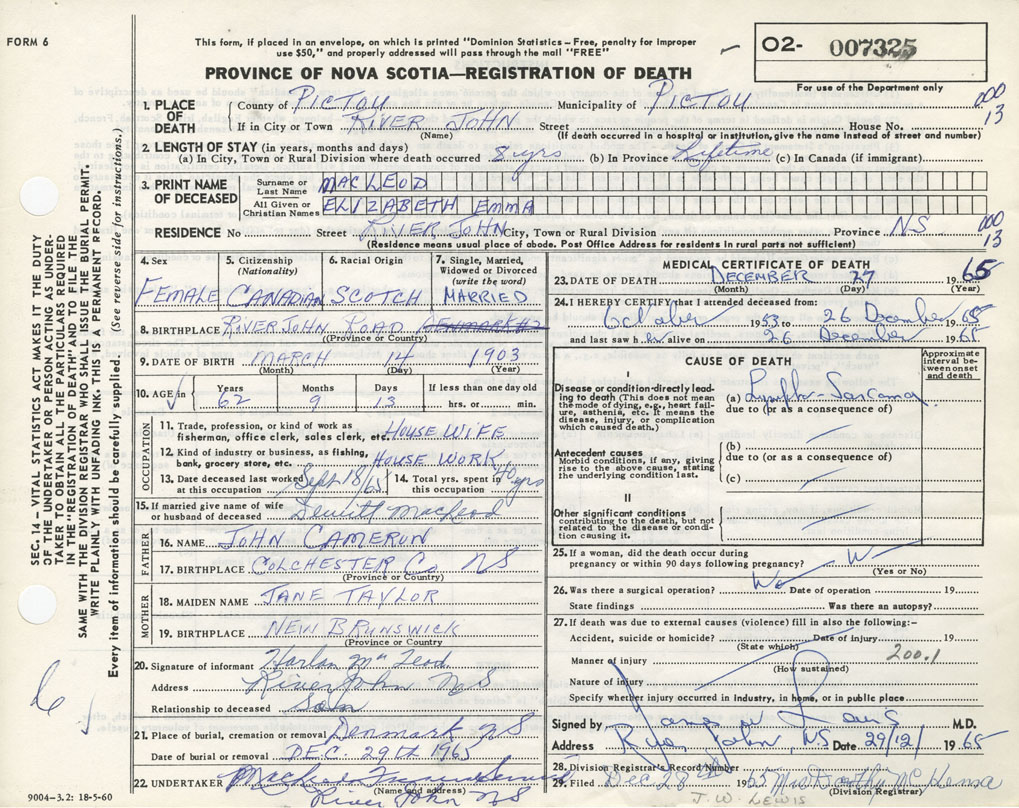 FORM 6
This form, if placed in an envelope, on which is printed "Dominion Statistics – Free, penalty for improper
use $50," and properly addressed will pass through the mail "FREE"
O2- 007325
PROVINCE OF NOVA SCOTIA—REGISTRATION OF DEATH
For use of the Department only
000
13
1. PLACE OF DEATH
County of PICTOU Municipality of PICTOU
If in City or Town RIVER JOHN Street House No.
(Name) (If death occurred in a hospital or institution, give name instead of street and number)
2. LENGTH OF STAY (in years, months and days)
(a) In City, Town or Rural Division where death occurred 8 yrs (b) In Province Lifetime (c) In Canada (if immigrant)
3. PRINT NAME OF DECEASED
Surname or Last Name MACLEOD
All Given or Christian Names ELIZABETH EMMA
RESIDENCE No. Street RIVER JOHN City, Town or Rural Division Province NS
000
13
(Residence means usual place of abode. Post Office Address for residents in rural parts not sufficient)
4. Sex
FEMALE
5. Citizenship
(Nationality)
CANADIAN
6. Racial Origin
SCOTCH
7. Single, Married,
Widowed or Divorced
(write the word)
MARRIED
8. BIRTHPLACE RIVER JOHN ROAD
(Province or Country)
9. DATE OF BIRTH MARCH 14 1903
(Month) (Day) (Year)
10. AGE in
Years 62
Months 9
Days 13
If less than one day old
hrs. or min.
OCCUPATION
11. Trade, profession, or kind of work as
fisherman, office clerk, sales clerk, etc. HOUSE WIFE
12. Kind of industry or business, as fishing,
bank, grocery store, etc. HOUSE WORK
13. Date deceased last worked
at this occupation Sept 18/65
14. Total yrs. spent in
this occupation 40 yrs
15. If married give name of wife
or husband of deceased Dewitt MacLeod
FATHER
16. NAME JOHN CAMERON
17. BIRTHPLACE COLCHESTER Co NS
(Province or Country)
MOTHER
18. MAIDEN NAME JANE TAYLOR
19. BIRTHPLACE NEW BRUNSWICK
(Province or Country)
20. Signature of informant Harlan McLeod
Address River John NS
Relationship to deceased Son
21. Place of burial, cremation or removal Denmark NS
Date of burial or removal DEC. 29th 1965
22. UNDERTAKER MacLeod Service
(Name and address)
River John NS
9004-3.2: 18-5-60
MEDICAL CERTIFICATE OF DEATH
23. DATE OF DEATH DECEMBER 27 1965
(Month) (Day) (Year)
24. I HEREBY CERTIFY that I attended deceased from:
October 1953 to 26 December 1965
and last saw h er alive on 26 December 1965
CAUSE OF DEATH
Approximate
interval be-
tween onset
and death
I
Disease or condition directly lead-
ing to death (This does not mean
the mode of dying, e.g., heart fail-
ure, asthenia, etc. It means the
disease, injury, or complication
which caused death.)
(a) Lympho-Sarcoma
due to (or as a consequence of)
Antecedent causes
Morbid conditions, if any, giving
rise to the above cause, stating
the underlying condition last.
(b)
due to (or as a consequence of)
(c)
II
Other significant conditions
contributing to the death, but not
related to the disease or condi-
tion causing it.
25. If a woman, did the death occur during
pregnancy or within 90 days following pregnancy?
(Yes or No)
26. Was there a surgical operation? No Date of operation 19
State findings Was there an autopsy?
27. If death was due to external causes (violence) fill in also the following:-
Accident, suicide or homicide? Date of injury 19
(State which)
200.1
Manner of injury
(How sustained)
Nature of injury
Specify whether injury occurred in industry, in home, or in public place
Signed by M.D.
Address River John, NS Date 29/12/ 1965
28. Division Registrar's Record Number
29. Filed Dec. 28th 1965 Mrs Dorothy McKenna
(Division Registrar)
J.W. LEWIS
SEC. 14 – VITAL STATISTICS ACT MAKES IT THE DUTY
OF THE UNDERTAKER OR PERSON ACTING AS UNDER-
TAKER TO OBTAIN ALL THE PARTICULARS REQUIRED
IN THE "REGISTRATION OF DEATH" AND TO FILE THE
SAME WITH THE DIVISION REGISTRAR WHO SHALL ISSUE THE BURIAL PERMIT.
WRITE PLAINLY WITH UNFADING INK. THIS IS A PERMANENT RECORD.
Every item of information should be carefully supplied. (See reverse side for instructions.)